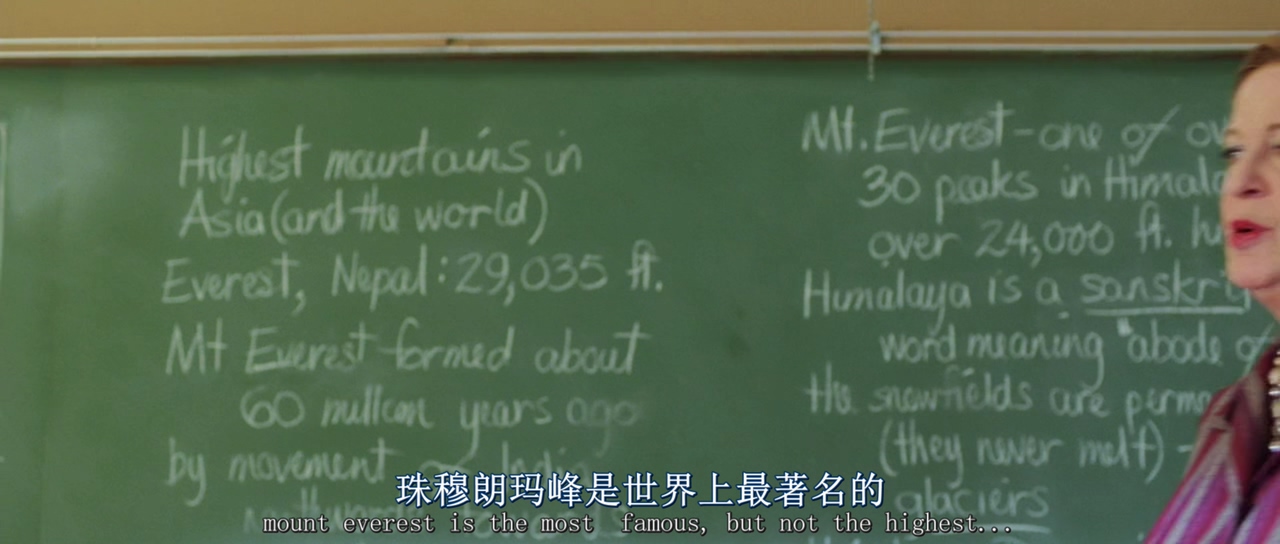 Highest mountains in
Asia (and the world)
Everest, Nepal: 29,035 ft.
Mt Everest formed about
60 million years ago
by movement
Mt. Everest - one of
30 peaks in
over 24,000 ft.
Himalaya is a
word meaning "abode of
the snowfields are
(they never melt) -
glaciers
珠穆朗玛峰是世界上最著名的
mount everest is the most famous, but not the highest...